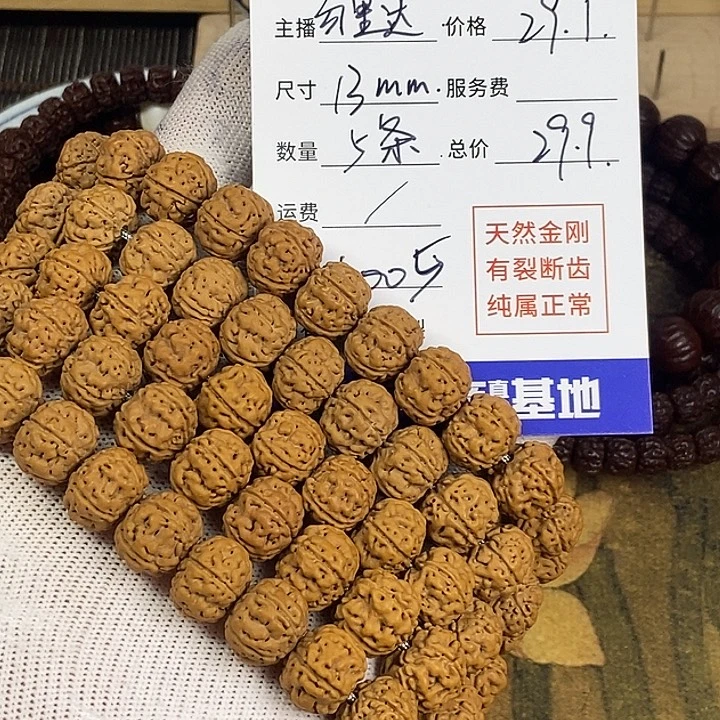 主播 价格 29.9.
尺寸 13mm. 服务费
数量 5条 .总价 29.9.
运费 /
005
天然金刚
有裂断齿
纯属正常
基地